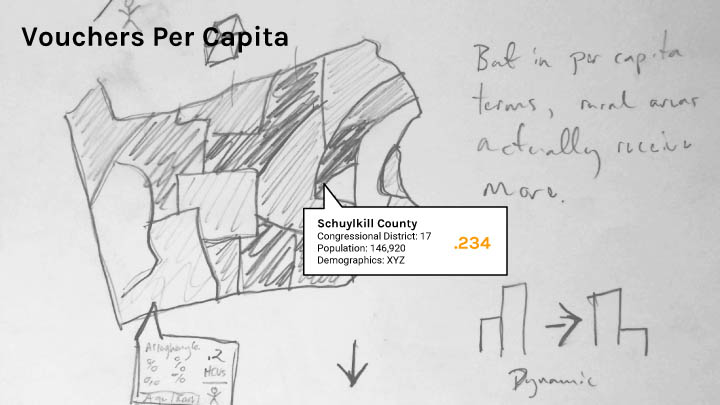 Vouchers Per Capita
But in per capita
terms, rural areas
actually receive
more.
Schuylkill County
Congressional District: 17
Population: 146,920
Demographics: XYZ
.234
Allegheny Co.
% %
% %
% %
.2
MCUs
Dynamic